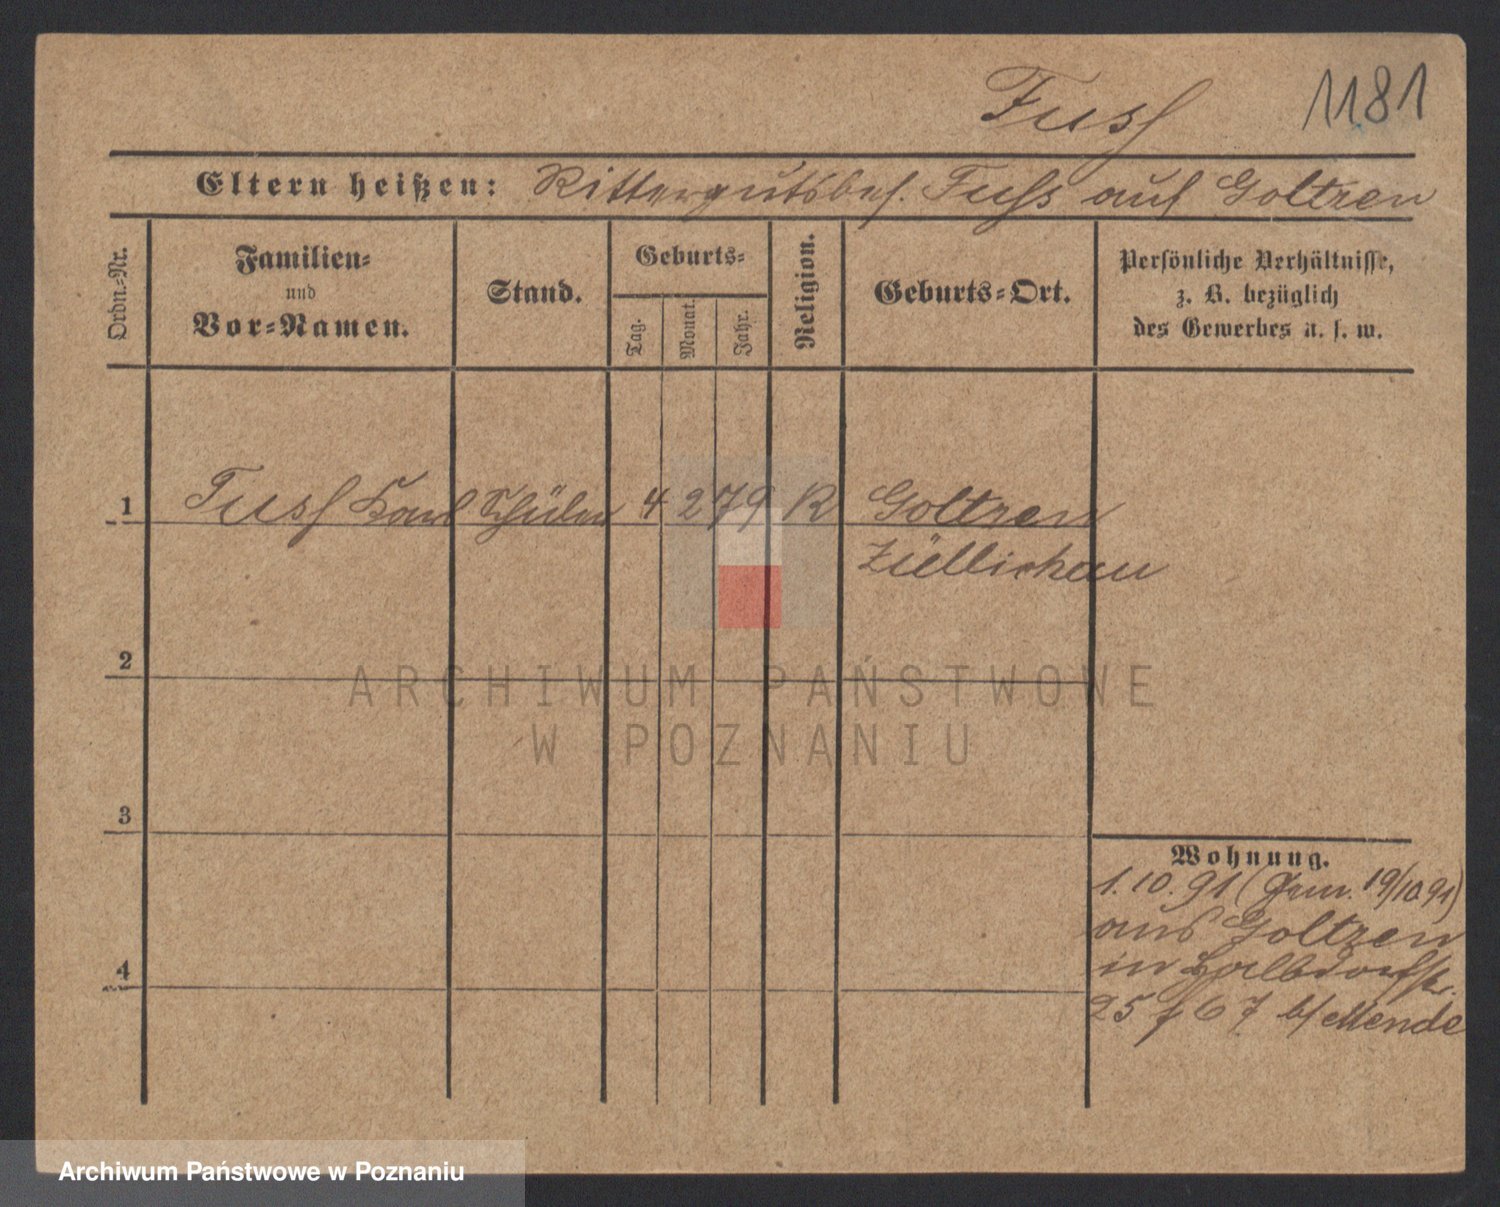 Fuss 1181
Eltern heißen: Rittergutsbes. Fuss auf Goltzen
Ordn.-Nr.
Familien- und Vor-Namen.
Stand.
Geburts-
Tag.
Monat.
Jahr.
Religion.
Geburts-Ort.
Persönliche Verhältnisse,
z. B. bezüglich
des Gewerbes u. s. w.
1 Fuss Karl Schüler 4 2 79 R Goltzen
Züllichau
2
3
4
Wohnung.
1.10.91 (Gem. 19/10 91)
aus Goltzen
in Halbdorfstr.
25 f 67 b/ Mende
ARCHIWUM PAŃSTWOWE
W POZNANIU
Archiwum Państwowe w Poznaniu